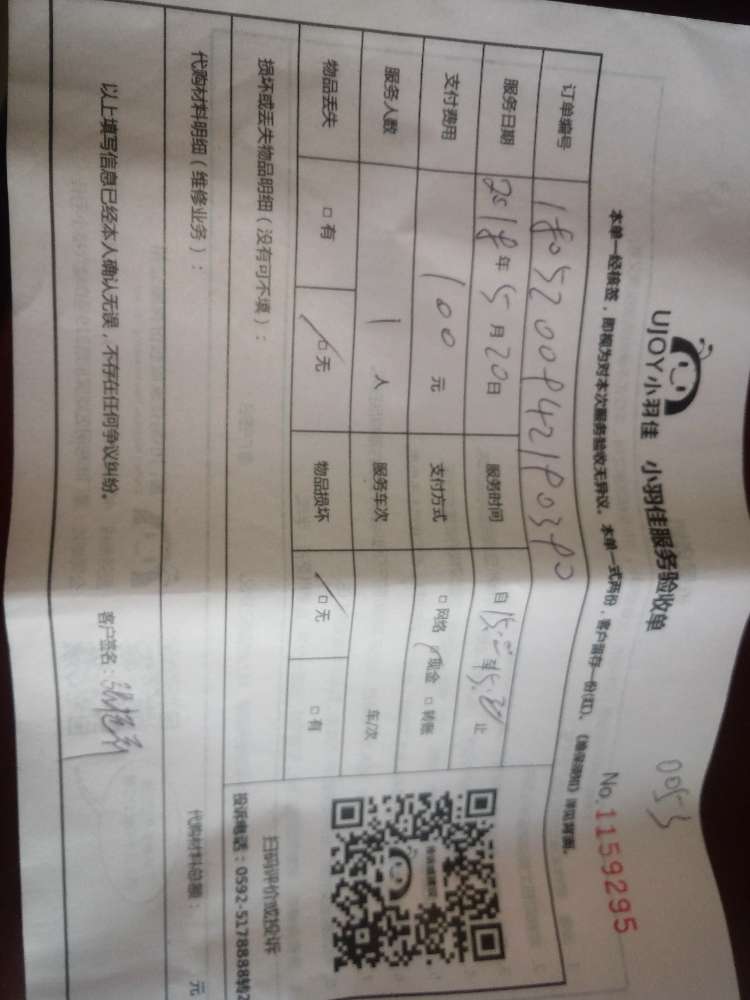 0053
UJOY小羽佳 小羽佳服务验收单
No.1159295
本单一经核签，即视为对本次服务验收无异议。本单一式两份，客户留存一份(红)。
订单编号
服务日期 2018年5月20日 服务时间 自 止
支付费用 100元 支付方式 □网络 现金 □转账
服务人数 1人 服务车次 车/次
物品丢失 □有 □无 物品损坏 □无 □有
损坏或丢失物品明细（没有可不填）：
扫码评价或投诉
投诉电话：0592-5178888转2
代购材料明细（维修业务）：
代购材料总额： 元
以上填写信息已经本人确认无误，不存在任何争议纠纷。 客户签名：